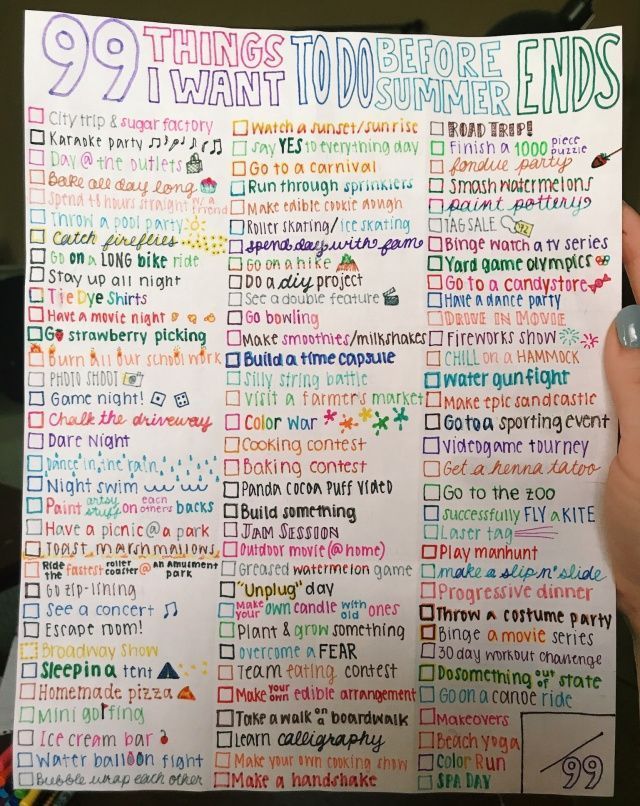 99 THINGS I WANT TO DO BEFORE SUMMER ENDS
City trip & sugar factory
Karaoke party
Day @ the outlets
Bake all day long
Spend 48 hours straight w/ a friend
Throw a pool party
Catch fireflies
Go on a LONG bike ride
Stay up all night
Tie Dye Shirts
Have a movie night
Go strawberry picking
Burn all our school work
PHOTO SHOOT
Game night!
Chalk the driveway
Dare Night
Dance in the rain
Night swim
Paint artsy stuff on each others backs
Have a picnic @ a park
Toast marshmallows
Ride the fastest roller coaster @ an amusment park
Go zip-lining
See a concert
Escape room!
Broadway show
Sleep in a tent
Homemade pizza
Mini golfing
Ice cream bar
Water balloon fight
Bubble wrap each other
Watch a sunset/sunrise
Say YES to everything day
Go to a carnival
Run through sprinklers
Make edible cookie dough
Roller skating/ice skating
Spend day with fam
Go on a hike
Do a diy project
See a double feature
Go bowling
Make smoothies/milkshakes
Build a time capsule
Silly string battle
Visit a farmer's market
Color War
Cooking contest
Baking contest
Panda cocoa puff video
Build something
JAM SESSION
Outdoor movie (@ home)
Greased watermelon game
"Unplug" day
Make your own candle with old ones
Plant & grow something
overcome a FEAR
Team eating contest
Make your own edible arrangement
Take a walk on a boardwalk
Learn calligraphy
Make your own cooking show
Make a handshake
ROAD TRIP!
Finish a 1000 piece puzzle
fondue party
Smash watermelons
paint pottery
TAG SALE
Binge watch a tv series
Yard game olympics
Go to a candystore
Have a dance party
DRIVE IN MOVIE
Fireworks show
CHILL on a HAMMOCK
Water gun fight
Make epic sandcastle
Go to a sporting event
Videogame tourney
Get a henna tatoo
Go to the zoo
Successfully FLY a KITE
Laser tag
Play manhunt
make a slip n' slide
Progressive dinner
Throw a costume party
Binge a movie series
30 day workout challenge
Do something out of state
Go on a canoe ride
Makeovers
Beach yoga
Color Run
SPA DAY
/99